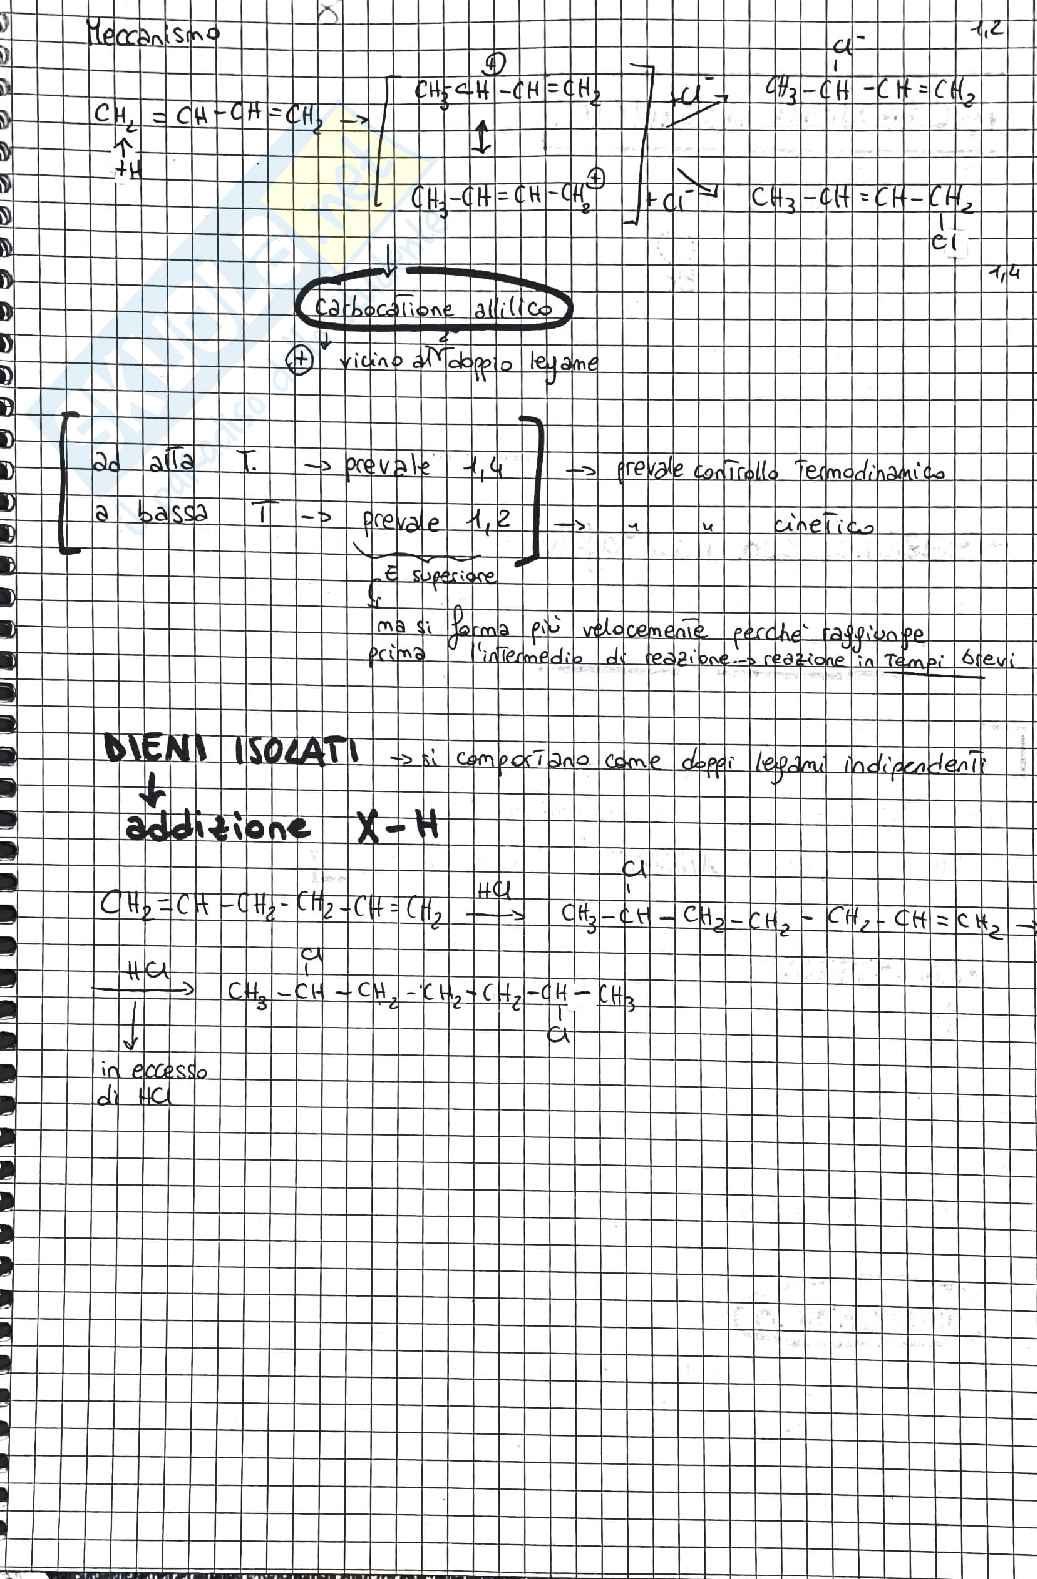 Meccanismo
1,2
Cl⁻
CH₂ = CH - CH = CH₂ → [ CH₃-CH-CH=CH₂ ⊕ ] +Cl⁻ → CH₃-CH-CH=CH₂
+H
↕
CH₃-CH=CH-CH₂ ⊕ +Cl⁻ → CH₃-CH=CH-CH₂
Cl
1,4
carbocatione allilico
⊕ vicino al doppio legame
ad alta T. → prevale 1,4 → prevale controllo Termodinamico
a bassa T → prevale 1,2 → " " cinetico
E superiore
ma si forma più velocemente perché raggiunge
prima l'intermedio di reazione → reazione in Tempi brevi
DIENI ISOLATI → si comportano come doppi legami indipendenti
addizione X-H
Cl
CH₂=CH-CH₂-CH₂-CH=CH₂ HCl → CH₃-CH-CH₂-CH₂-CH₂-CH=CH₂ →
Cl
HCl → CH₃-CH-CH₂-CH₂-CH₂-CH-CH₃
Cl
in eccesso
di HCl